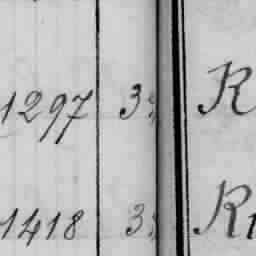 1297 3
1418 3